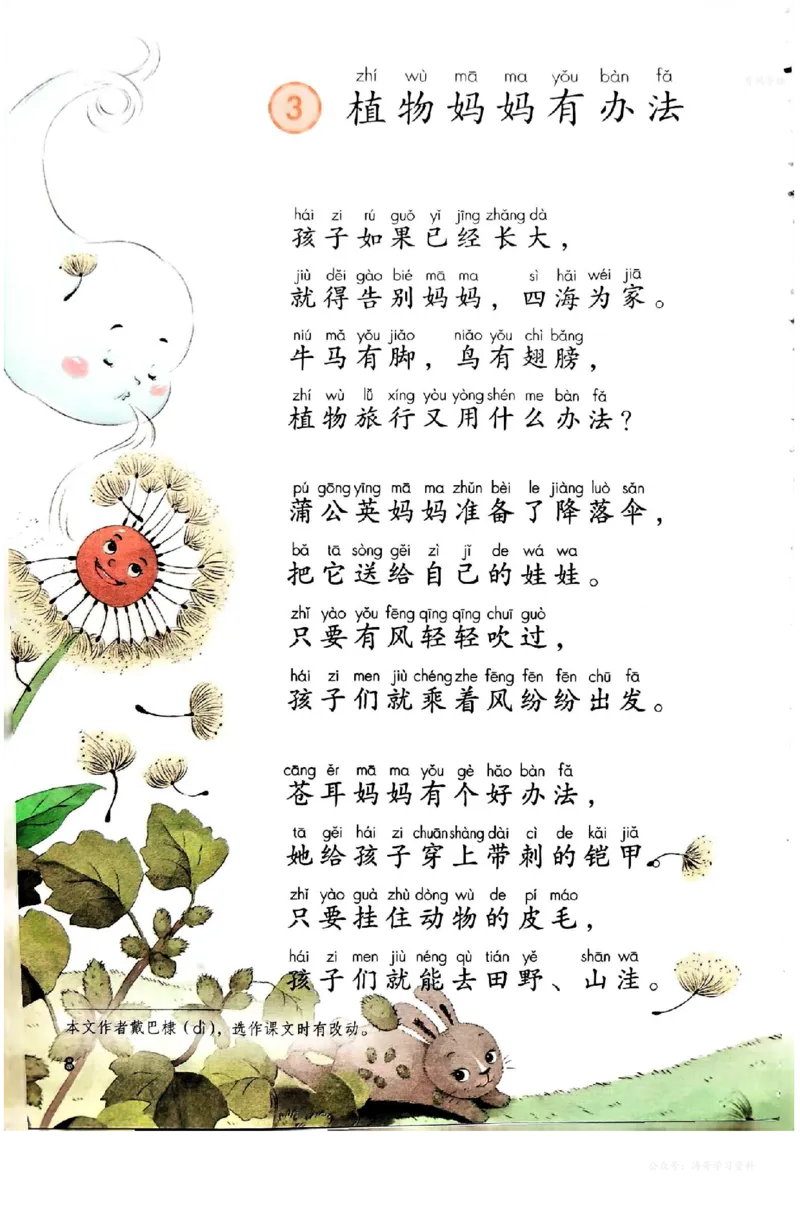 zhí wù mā ma yǒu bàn fǎ
3 植物妈妈有办法
hái zi rú guǒ yǐ jīng zhǎng dà
孩子如果已经长大，
jiù děi gào bié mā ma sì hǎi wéi jiā
就得告别妈妈，四海为家。
niú mǎ yǒu jiǎo niǎo yǒu chì bǎng
牛马有脚，鸟有翅膀，
zhí wù lǚ xíng yòu yòng shén me bàn fǎ
植物旅行又用什么办法？
pú gōng yīng mā ma zhǔn bèi le jiàng luò sǎn
蒲公英妈妈准备了降落伞，
bǎ tā sòng gěi zì jǐ de wá wa
把它送给自己的娃娃。
zhǐ yào yǒu fēng qīng qīng chuī guò
只要有风轻轻吹过，
hái zi men jiù chéng zhe fēng fēn fēn chū fā
孩子们就乘着风纷纷出发。
cāng ěr mā ma yǒu gè hǎo bàn fǎ
苍耳妈妈有个好办法，
tā gěi hái zi chuān shàng dài cì de kǎi jiǎ
她给孩子穿上带刺的铠甲。
zhǐ yào guà zhù dòng wù de pí máo
只要挂住动物的皮毛，
hái zi men jiù néng qù tián yě shān wā
孩子们就能去田野、山洼。
本文作者戴巴棣（dì），选作课文时有改动。
8